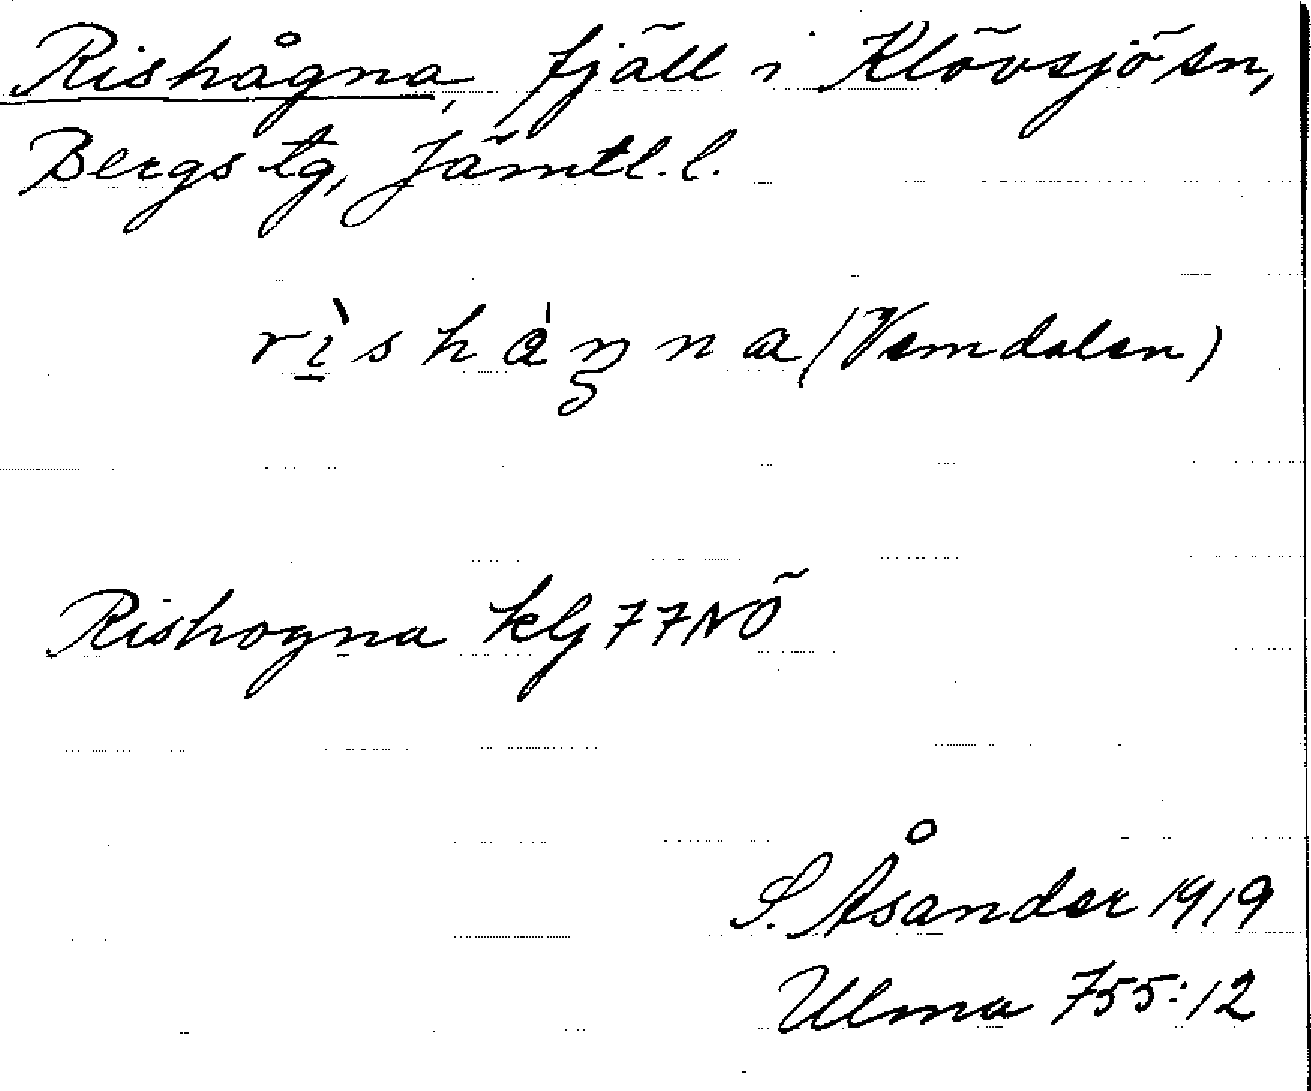 Rishågna, fjäll i Klövsjö sn,
Bergs tg, Jämtl. l.
rı̲̀shàŋna (Vemdalen)
Rishogna kbl 77NÖ
S. Åsander 1919
Ulma 755:12